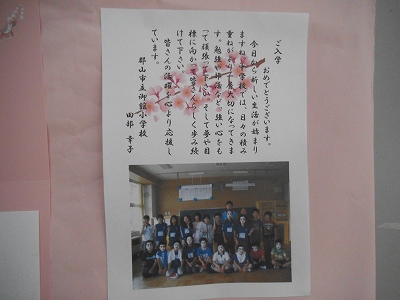 ご入学
おめでとうございます。
今日から新しい生活が始まり
ますね。学校では、日々の積み
重ねがより一層大切になってきま
す。勉強や部活など、強い心をも
って頑張って下さい。そして夢や目
標に向かって皆さんらしく歩み続
けて下さい。
皆さんの活躍を心より応援し
ています。
郡山市立御舘小学校
田部 幸子